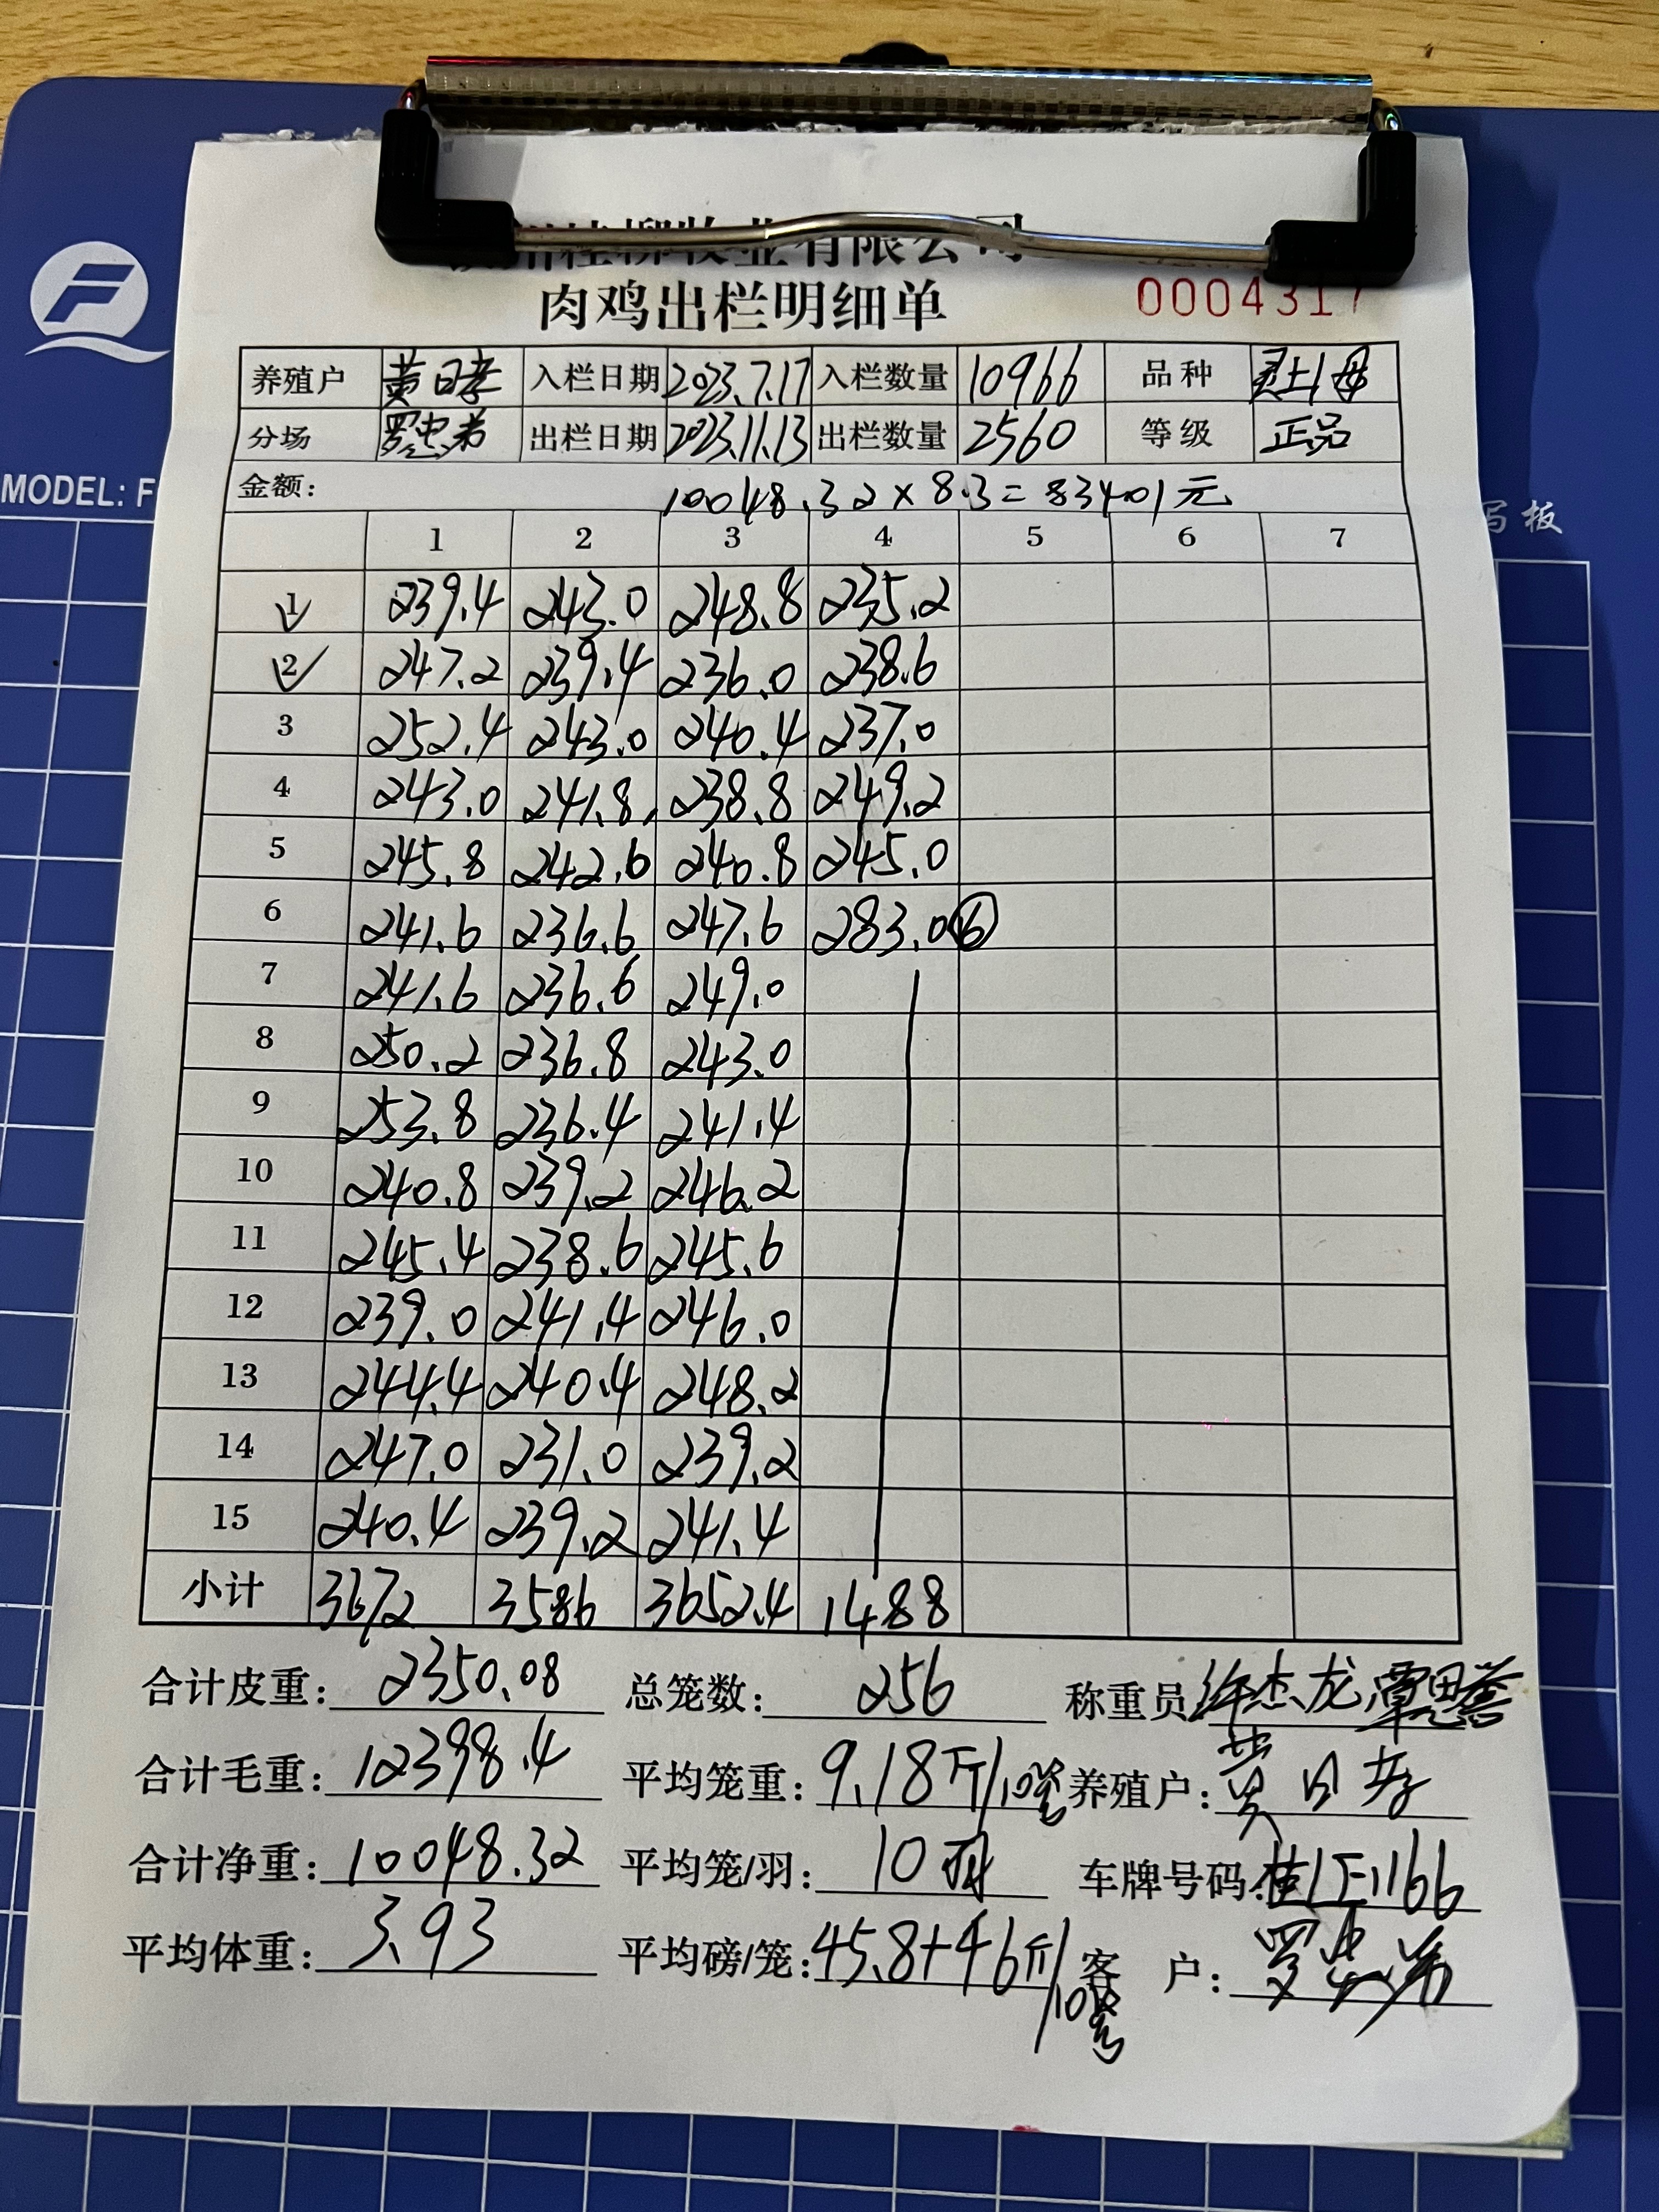 桂柳牧业有限公司
肉鸡出栏明细单 0004317
养殖户 黄日孝 入栏日期 2023.7.17 入栏数量 10966 品种 灵土1母
分场 罗忠 出栏日期 2023.11.13 出栏数量 2560 等级 正品
MODEL: F
金额: 10048.32×8.3=83401元
写板
1 2 3 4 5 6 7
1 239.4 243.0 248.8 235.2
2 247.2 239.4 236.0 238.6
3 252.4 243.0 240.4 237.0
4 243.0 241.8 238.8 249.2
5 245.8 242.6 240.8 245.0
6 241.6 236.6 247.6 283.0 ⑥
7 241.6 236.6 249.0
8 250.2 236.8 243.0
9 253.8 236.4 241.4
10 240.8 239.2 246.2
11 245.4 238.6 245.6
12 239.0 241.4 246.0
13 244.4 240.4 248.2
14 247.0 231.0 239.2
15 240.4 239.2 241.4
小计 3672 3586 3652.4 1488
合计皮重: 2350.08 总笼数: 256 称重员 杰龙
合计毛重: 12398.4 平均笼重: 9.18斤/ 养殖户: 黄日孝
合计净重: 10048.32 平均笼/羽: 10羽 车牌号码: 1166
平均体重: 3.93 平均磅/笼: 45.8+46斤/ 客 户: 罗忠